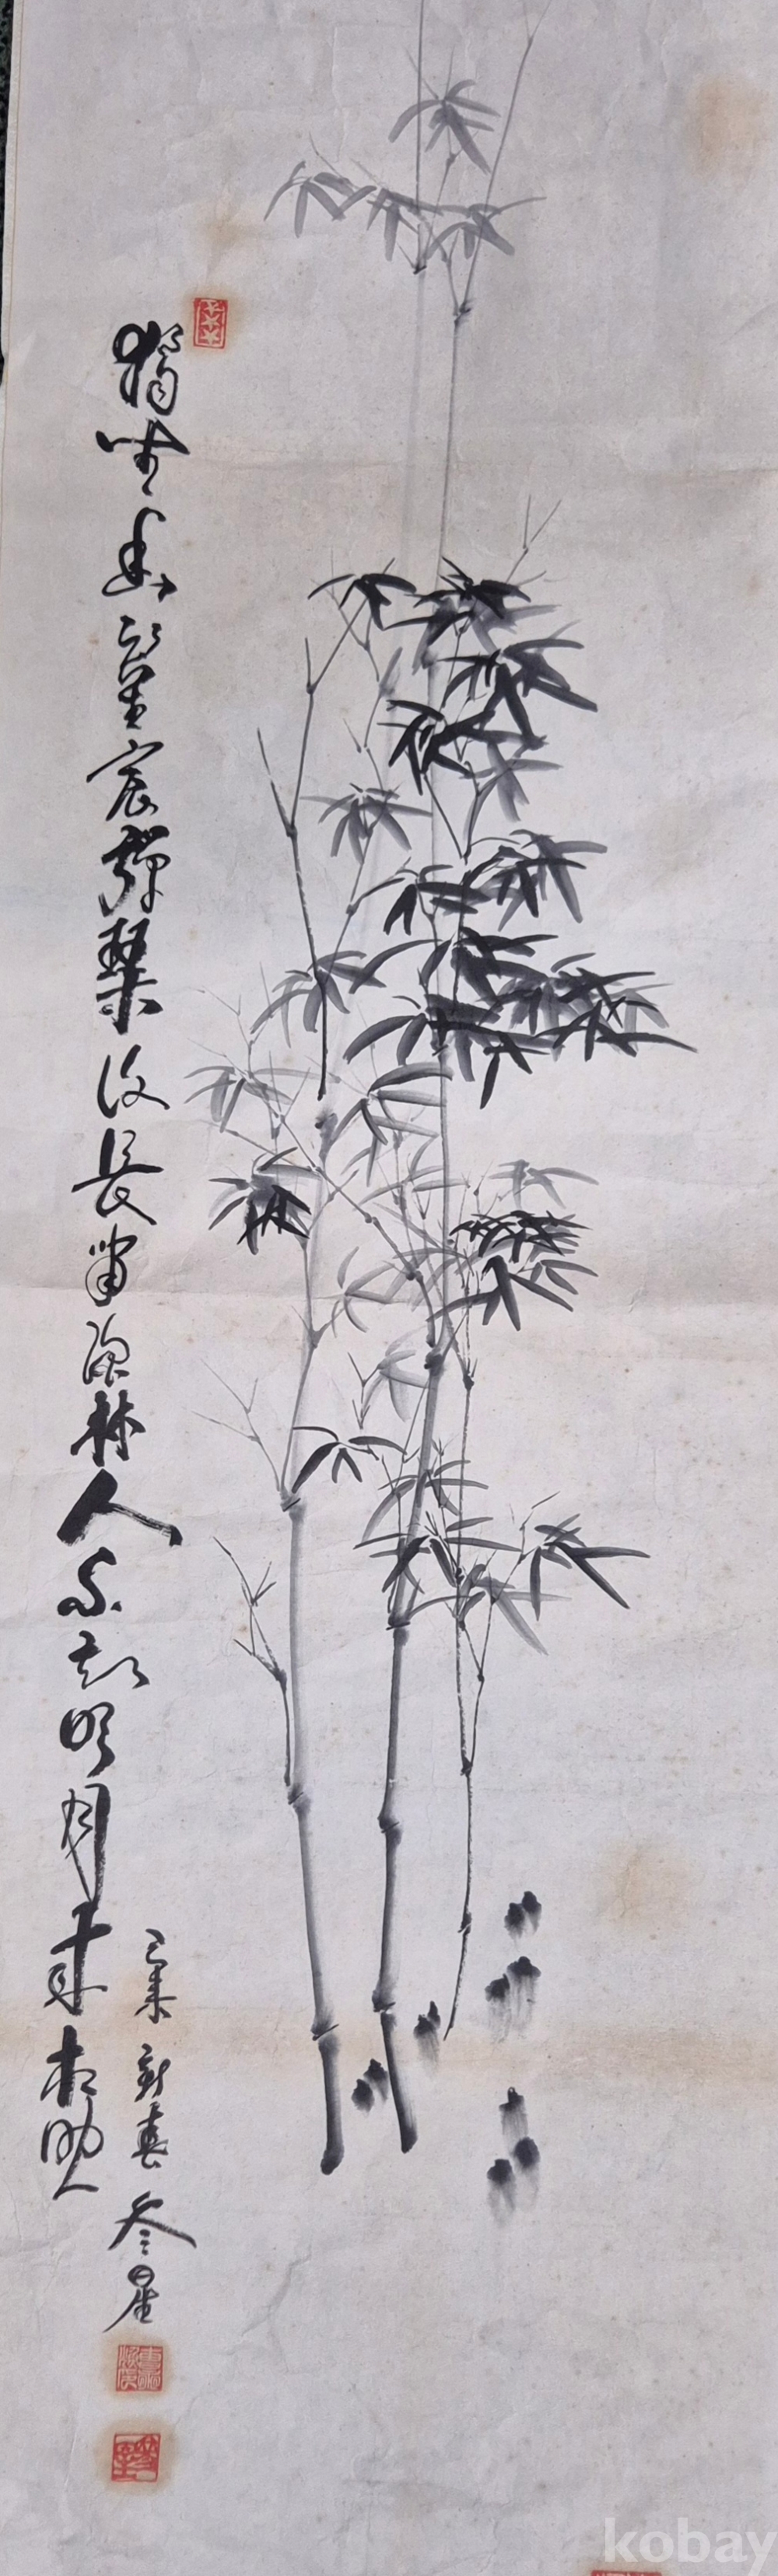 獨坐幽篁裏彈琴復長嘯深林人不知明月來相照
己未新春
kobay